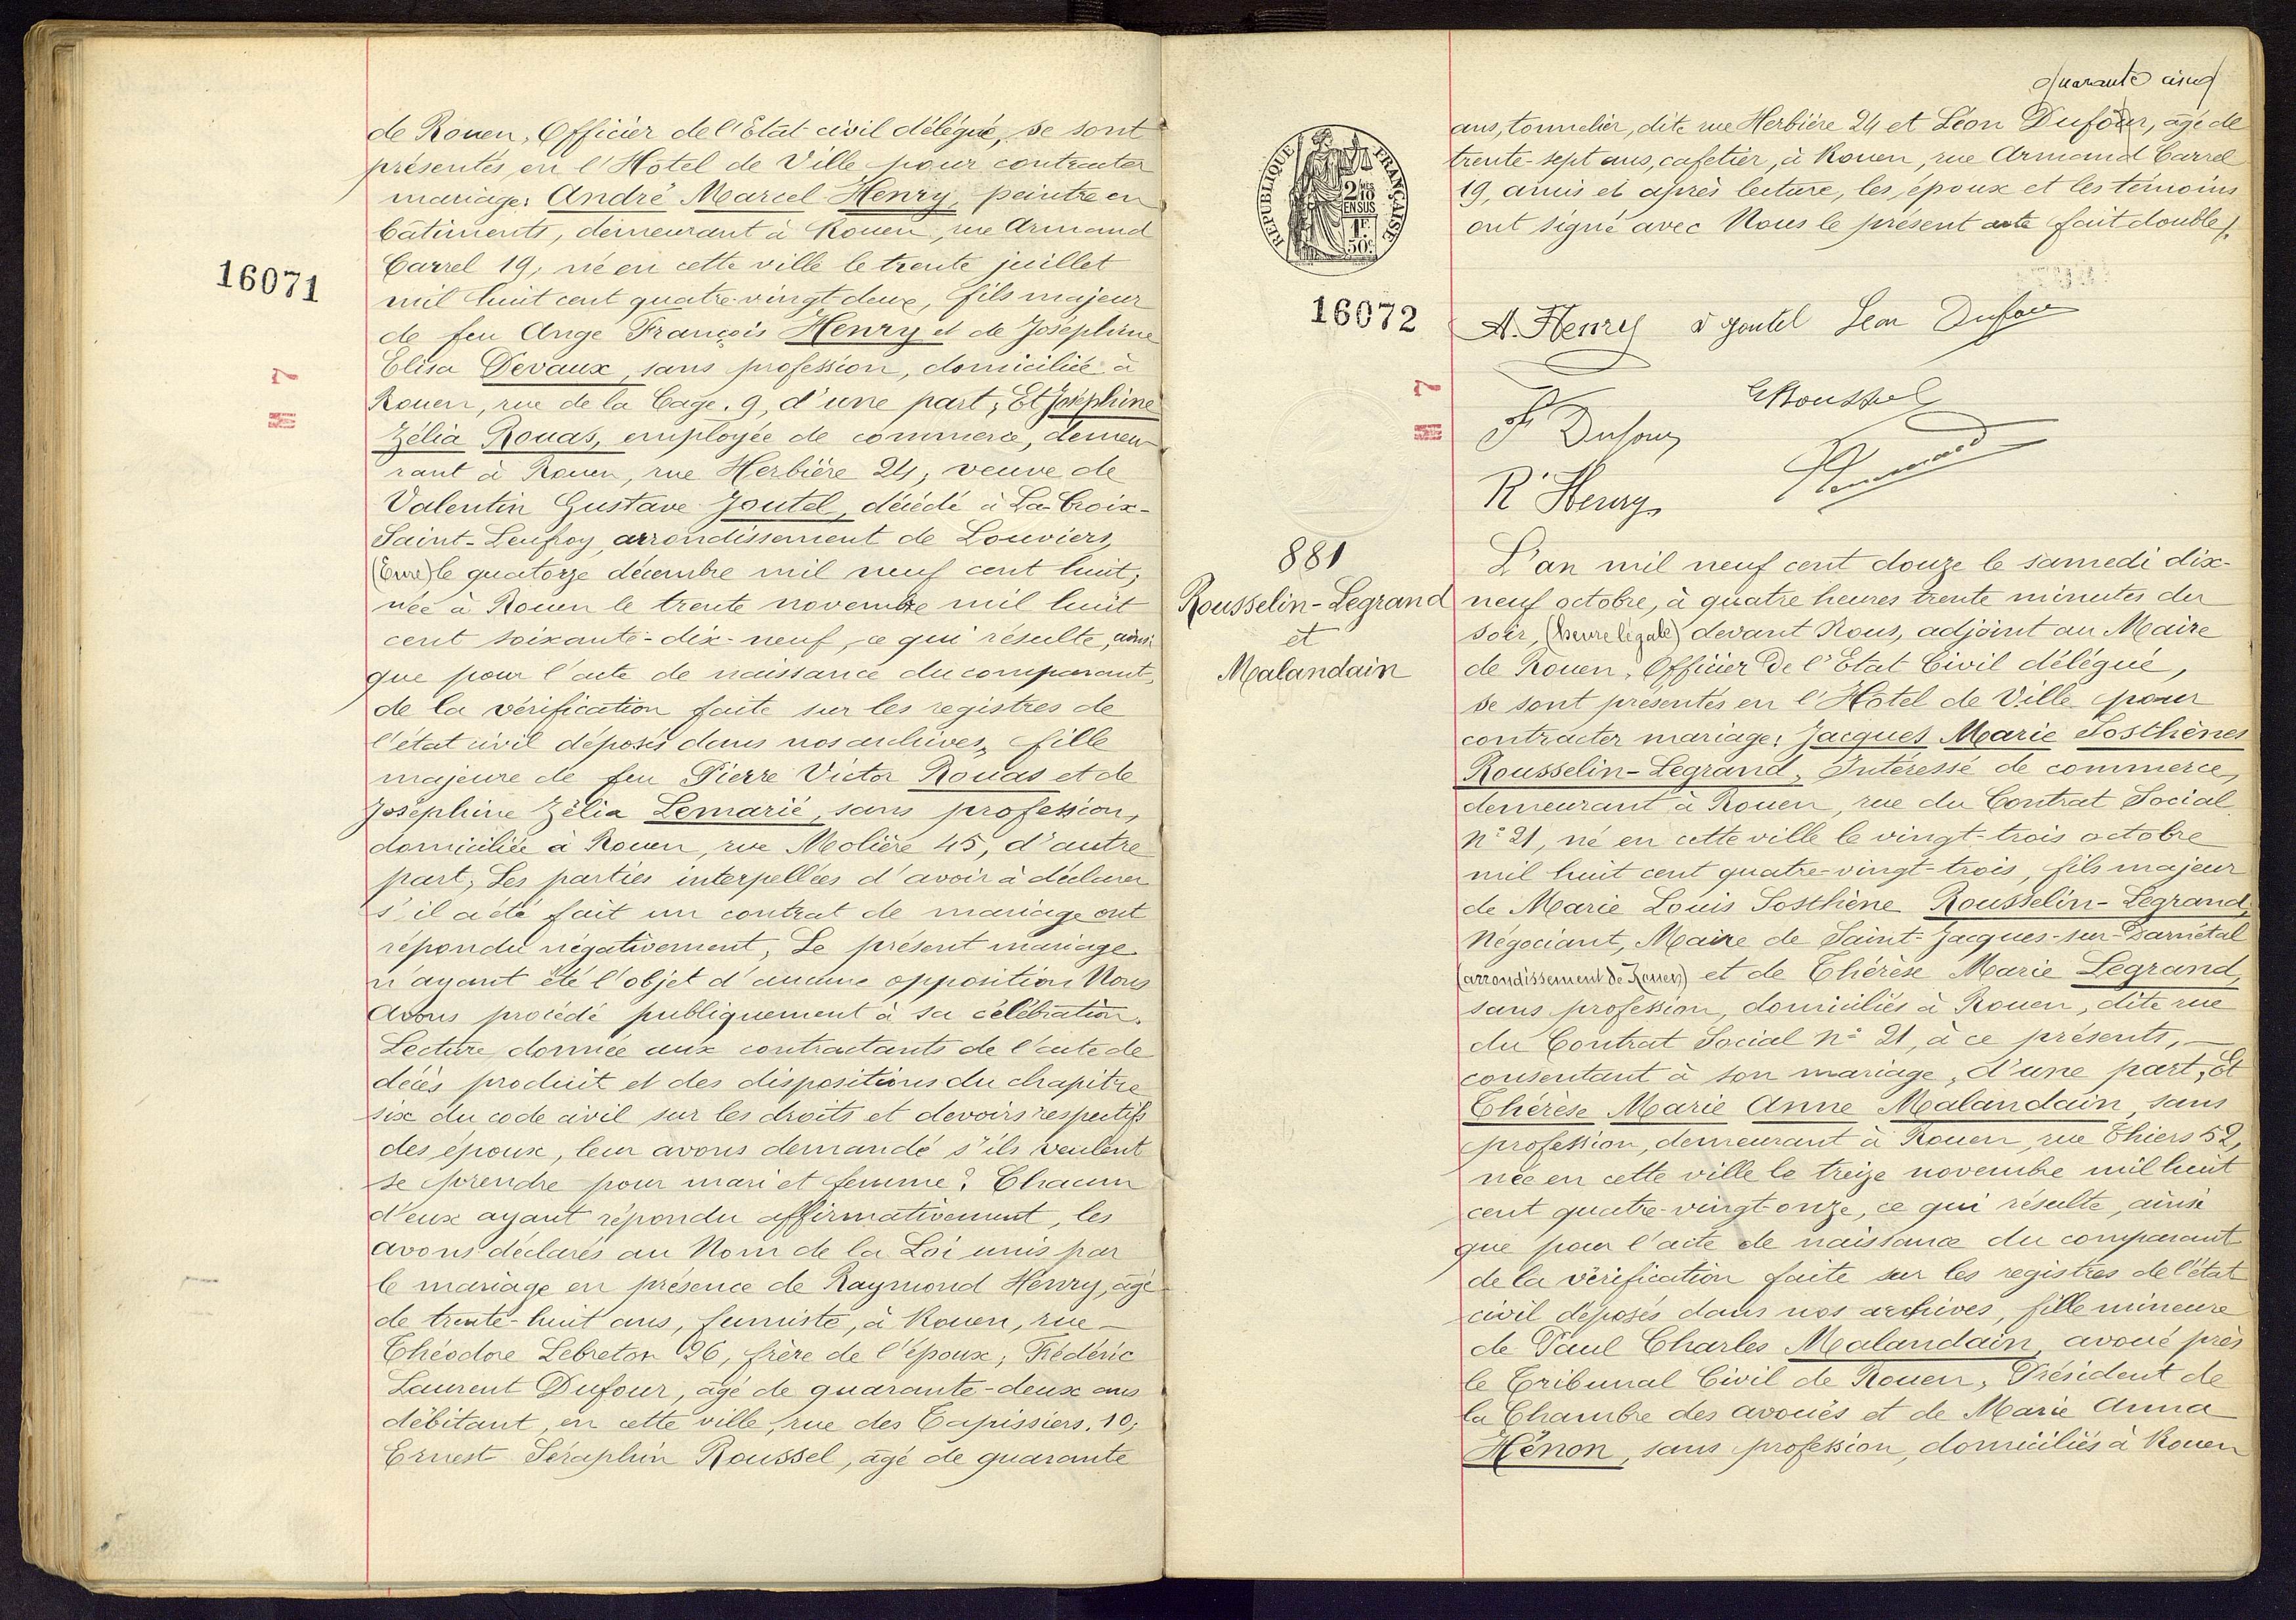 de Rouen, Officier de l'Etat civil délégué, se sont
présentés en l'Hotel de Ville pour contracter
mariage: André Marcel Henry, peintre en
bâtiments, demeurant à Rouen, rue Armand
Carrel 19, né en cette ville le trente juillet
16071
mil huit cent quatre-vingt deux, fils majeur
de feu Ange François Henry et de Joséphine
Elisa Devaux, sans profession, domiciliée à
Rouen, rue de la Cage, 9, d'une part; Et Joséphine
Zélia Rouas, employée de commerce, demeu-
rant à Rouen, rue Herbière 24, veuve de
Valentin Gustave Joutel, décédé à La Croix-
Saint-Leufroy, arrondissement de Louviers,
(Eure) le quatorze décembre mil neuf cent huit;
née à Rouen le trente novembre mil huit
cent soixante-dix-neuf, ce qui résulte, ainsi
que pour l'acte de naissance du comparant,
de la vérification faite sur les registres de
l'état civil déposés dans nos archives, fille
majeure de feu Pierre Victor Rouas et de
Joséphine Zélia Lemarié, sans profession,
domiciliée à Rouen, rue Molière 45, d'autre
part; Les parties interpellées d'avoir à déclarer
s'il a été fait un contrat de mariage ont
répondu négativement, Le présent mariage
n'ayant été l'objet d'aucune opposition Nous
Avons procédé publiquement à sa célébration.
Lecture donnée aux contractants de l'acte de
décès produit et des dispositions du chapitre
six du code civil sur les droits et devoirs respectifs
des époux, leur avons demandé s'ils veulent
se prendre pour mari et femme? Chacun
d'eux ayant répondu affirmativement, les
avons déclarés au Nom de la Loi unis par
le mariage en présence de Raymond Henry, âgé
de trente-huit ans, fumiste, à Rouen, rue
Théodore Lebreton 26, frère de l'époux; Frédéric
Laurent Dufour, âgé de quarante-deux ans
débitant, en cette ville, rue des Tapissiers, 10;
Ernest Séraphin Roussel, âgé de quarante
quarante cinq
ans, tonnelier, dite rue Herbière 24 et Léon Dufour, âgé de
trente-sept ans, cafetier, à Rouen, rue Armand Carrel
19, amis et après lecture, les époux et les témoins
ont signé avec Nous le présent acte fait double.
REPUBLIQUE FRANÇAISE
2/10 EN SUS
1f 50c
16072
A. Henry Joutel Leon Dufour
F Dufour E Roussel
R. Henry
881
Rousselin-Legrand
et
Malandain
L'an mil neuf cent douze le samedi dix-
neuf octobre, à quatre heures trente minutes du
soir, (heure légale) devant Nous, adjoint au Maire
de Rouen, Officier De l'Etat Civil délégué,
se sont présentés en l'Hotel de Ville pour
contracter mariage: Jacques Marie Sosthènes
Rousselin-Legrand, Intéressé de commerce,
demeurant à Rouen, rue du Contrat Social
n° 21, né en cette ville le vingt-trois octobre
mil huit cent quatre-vingt-trois, fils majeur
de Marie Louis Sosthène Rousselin-Legrand,
Négociant, Maire de Saint-Jacques-sur-Darnétal
(arrondissement de Rouen) et de Thérèse Marie Legrand,
sans profession, domiciliés à Rouen, dite rue
du Contrat Social n° 21, à ce présents, —
consentant à son mariage, d'une part, Et
Thérèse Marie Anne Malandain, sans
profession, demeurant à Rouen, rue Thiers 52,
née en cette ville le treize novembre mil huit
cent quatre-vingt-onze, ce qui résulte, ainsi
que pour l'acte de naissance du comparant
de la vérification faite sur les registres de l'état
civil déposés dans nos archives, fille mineure
de Paul Charles Malandain, avoué près
le Tribunal Civil de Rouen, Président de
la Chambre des avoués et de Marie Anna
Hénon, sans profession, domiciliés à Rouen